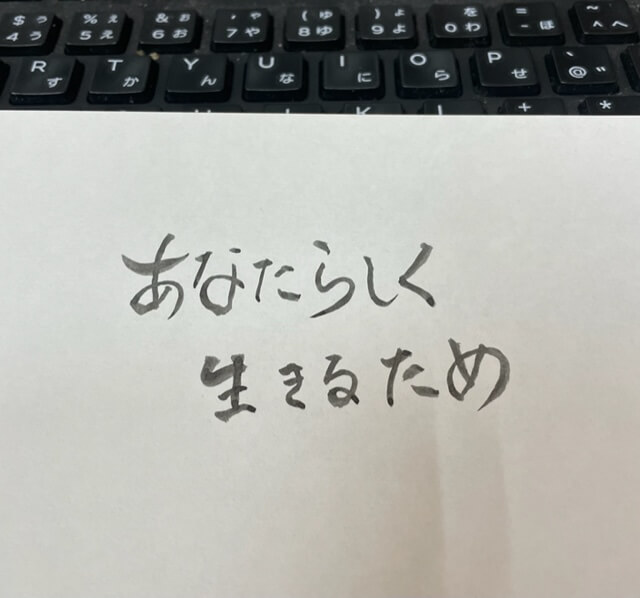 $ ぅ % ぇ & ぉ ' ゃ ( ゅ ) ょ を = ~
4 う 5 え 6 お 7 や 8 ゆ 9 よ 0 わ - ほ ^ へ
R す T か Y ん U な I に O ら P せ ` @ ゛
K + *
あなたらしく
生きるため